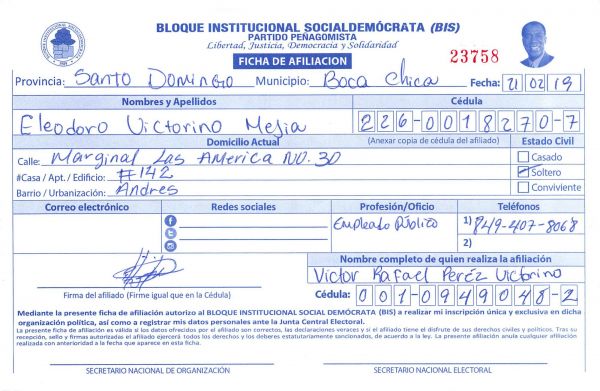 BLOQUE INSTITUCIONAL SOCIALDEMÓCRATA (BIS)
PARTIDO PEÑAGOMISTA
Libertad, Justicia, Democracia y Solidaridad
FICHA DE AFILIACION
23758
Provincia: Santo Domingo Municipio: Boca Chica Fecha: 21 02 19
Nombres y Apellidos Cédula
Eleodoro Victorino Mejia 226-0018270-7
Domicilio Actual (Anexar copia de cédula del afiliado) Estado Civil
Calle: Marginal Las America NO. 30 Casado
#Casa / Apt. / Edificio: #142 Soltero
Barrio / Urbanización: Andres Conviviente
Correo electrónico Redes sociales Profesión/Oficio Teléfonos
Empleado Público 1) 849-407-8068
2)
Nombre completo de quien realiza la afiliación
Victor Rafael Peréz Victorino
Firma del afiliado (Firme igual que en la Cédula) Cédula: 001-0949048-2
Mediante la presente ficha de afiliación autorizo al BLOQUE INSTITUCIONAL SOCIAL DEMÓCRATA (BIS) a realizar mi inscripción única y exclusiva en dicha
organización política, así como a registrar mis datos personales ante la Junta Central Electoral.
La presente ficha de afiliación es válida si los datos ofrecidos por el afiliado son correctos, las declaraciones verates y si el afiliado tiene el disfrute de sus derechos civiles y políticos. Tras su
recepción, sello y firmas autorizadas el afiliado ejercerá todos los derechos y los deberes estatutariamente sancionados, de acuerdo a la ley. La presente afiliación anula cualquier afiliación
realizada con anterioridad a la fecha que aparece en esta ficha.
SECRETARIO NACIONAL DE ORGANIZACIÓN SECRETARIO NACIONAL ELECTORAL